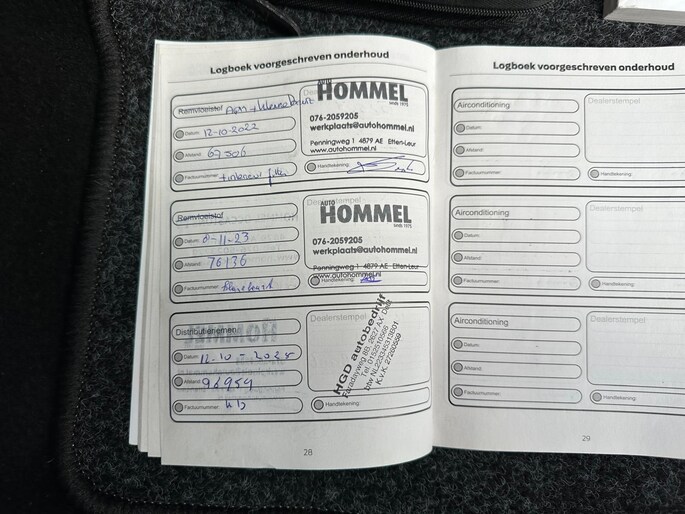 Logboek voorgeschreven onderhoud
Remvloeistof APK + kleine beurt
Datum: 12-10-2022
Afstand: 67506
Factuurnummer: + interieur filter
Dealerstempel
AUTO HOMMEL
sinds 1975
076-2059205
werkplaats@autohommel.nl
Penningweg 1 4879 AE Etten-Leur
www.autohommel.nl
Handtekening:
Remvloeistof
Datum: 8-11-23
Afstand: 76136
Factuurnummer:
Dealerstempel
AUTO HOMMEL
sinds 1975
076-2059205
werkplaats@autohommel.nl
Penningweg 1 4879 AE Etten-Leur
www.autohommel.nl
Handtekening:
Distributieriemen
Datum: 12-10-2025
Afstand: 96959
Factuurnummer:
Dealerstempel
HGD autobedrijf
Faradayweg 8B, 2627 AX Delft
Tel. 0152510566
K.v.K. 27200556
Handtekening:
28
Logboek voorgeschreven onderhoud
Airconditioning
Datum:
Afstand:
Factuurnummer:
Dealerstempel
Handtekening:
Airconditioning
Datum:
Afstand:
Factuurnummer:
Dealerstempel
Handtekening:
Airconditioning
Datum:
Afstand:
Factuurnummer:
Dealerstempel
Handtekening:
29